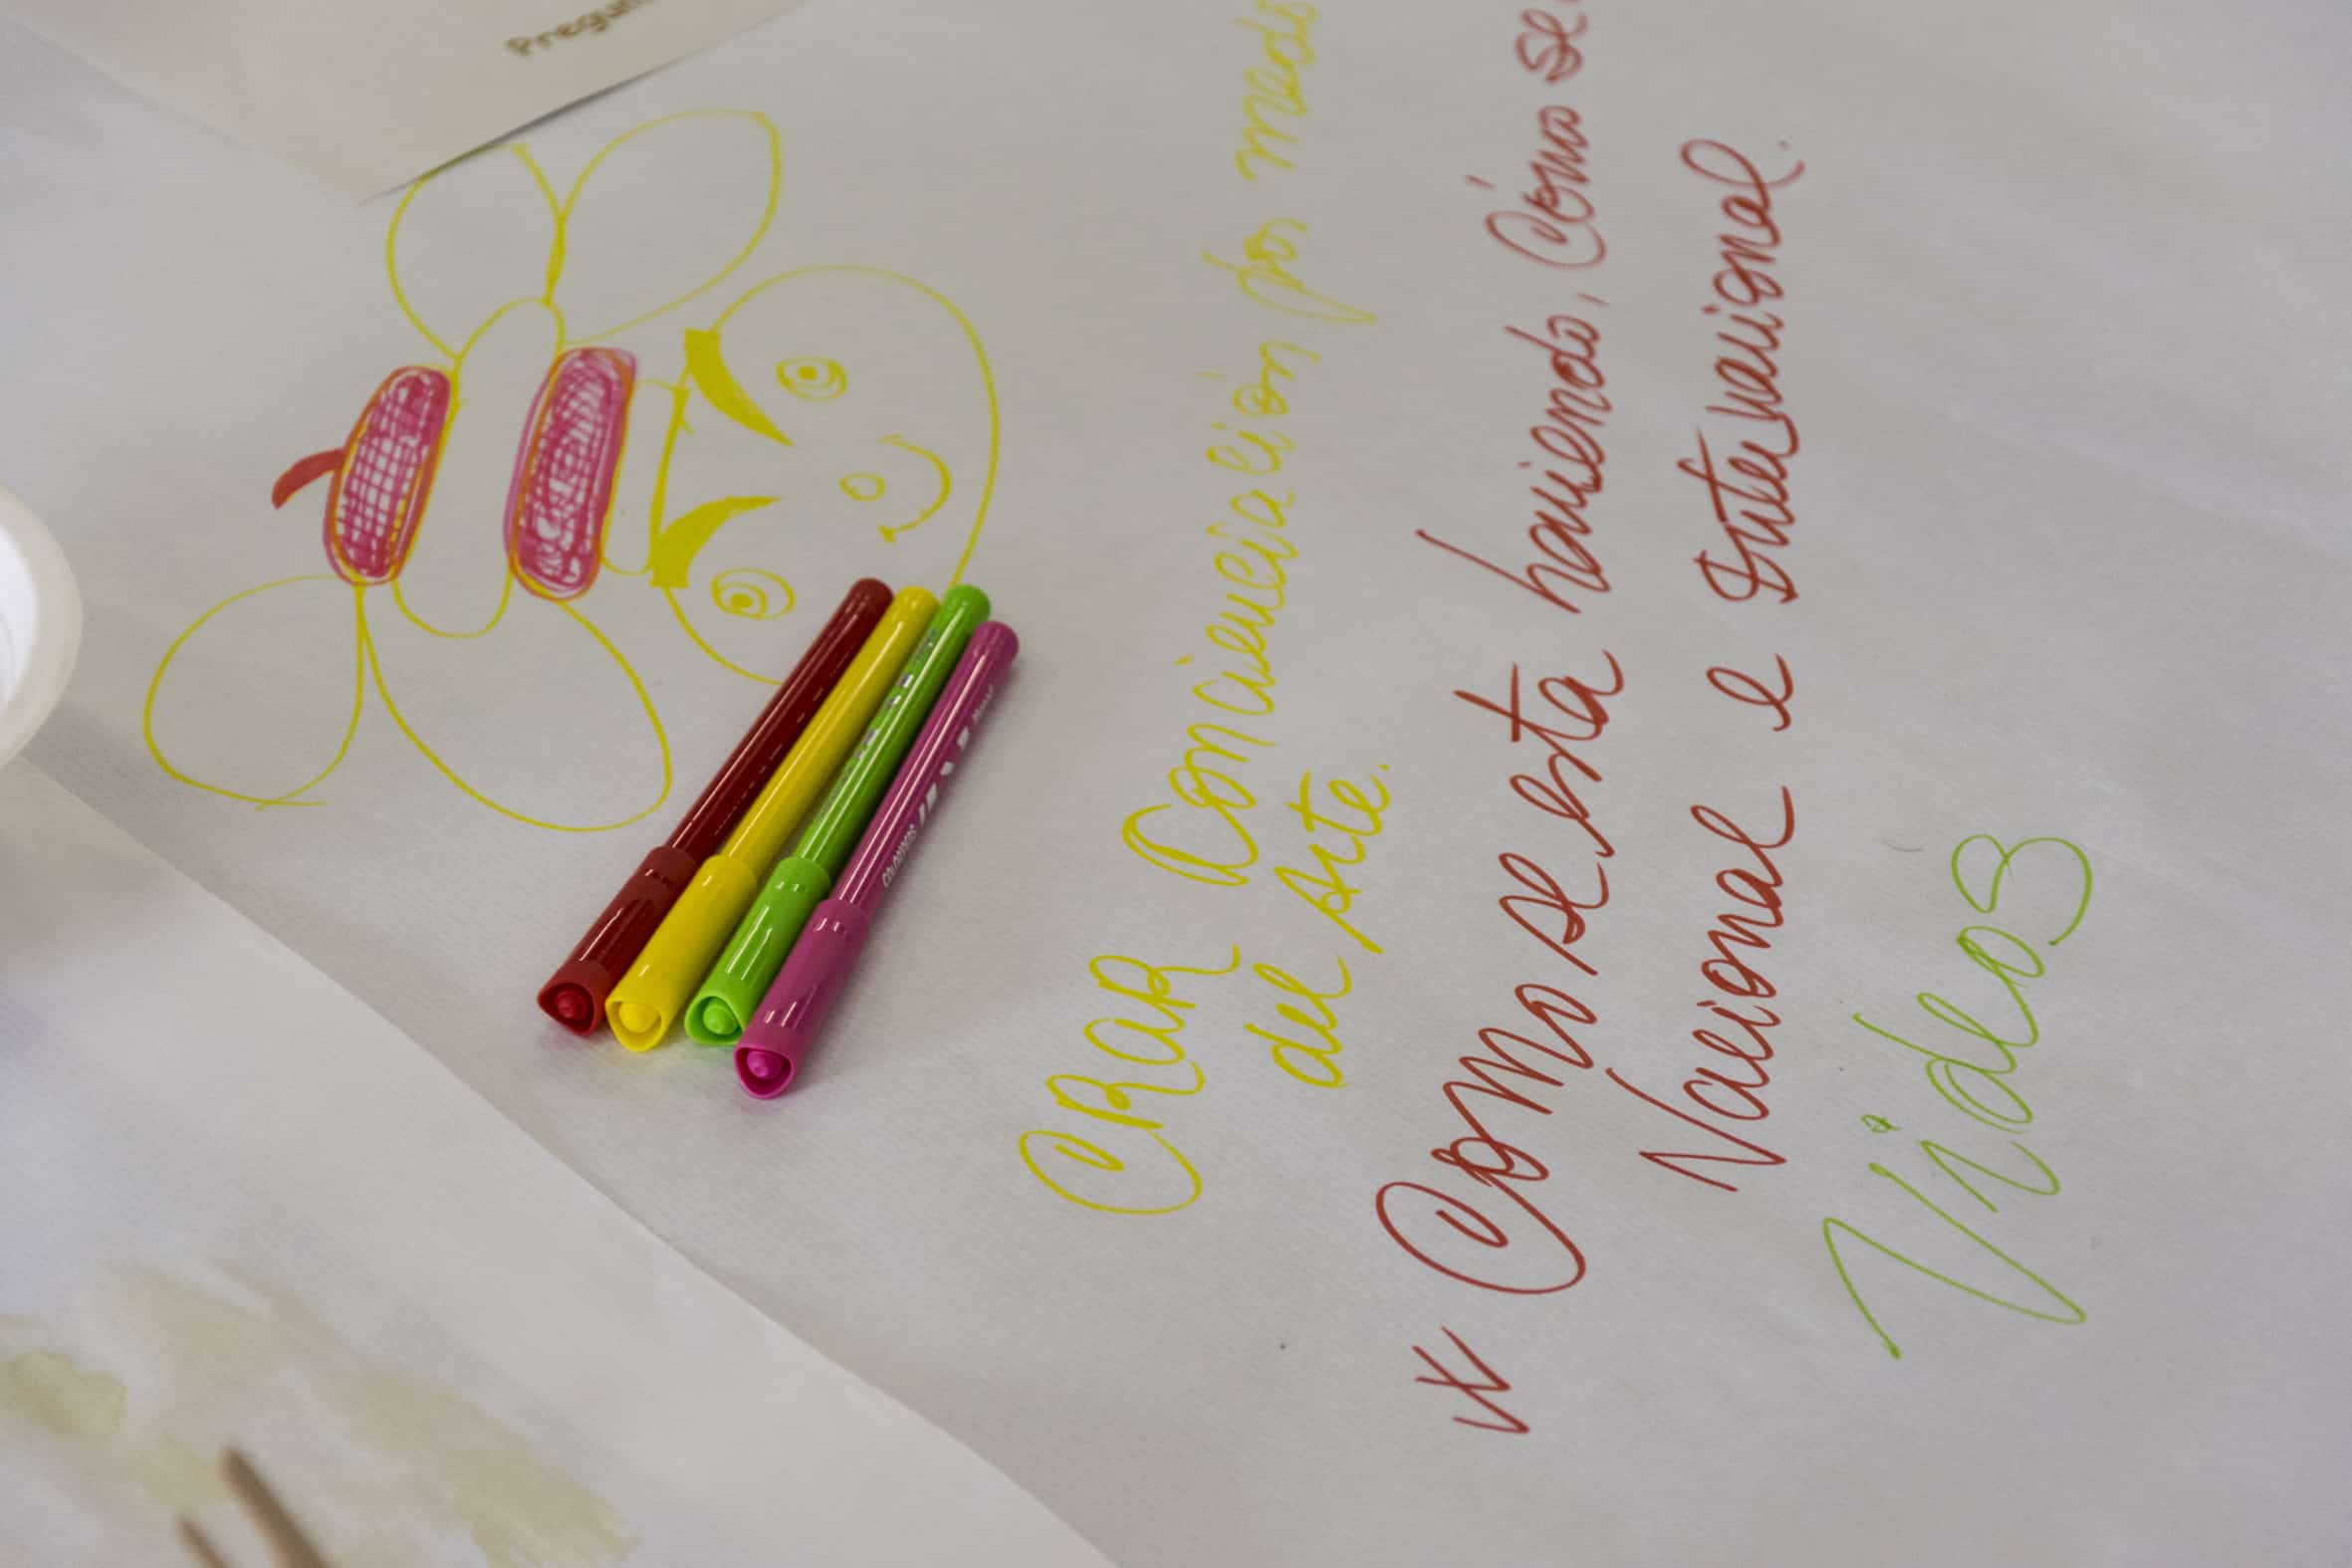 CRaR Conciencia ción por medio
del Arte.
* Como se esta haciendo, Cómo se
Nacional e Internacional.
Videos